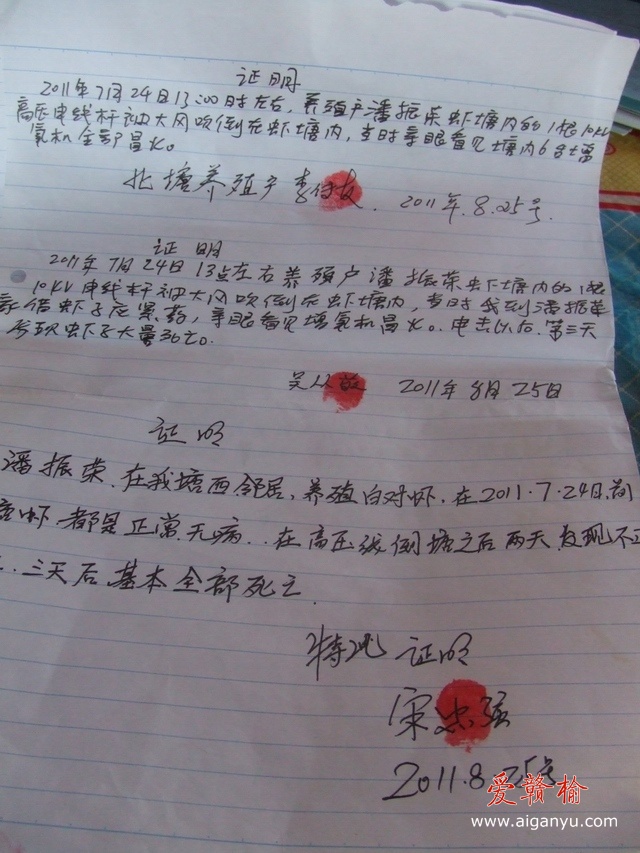 证明
2011年7月24日13:00时左右,养殖户潘振荣虾塘内的1根10KV
高压电线杆被大风吹倒在虾塘内,当时亲眼看见塘内6台增
氧机全部冒火。
北塘养殖户 李 2011年.8.25号.
证明
2011年7月24日13点左右养殖户潘振荣虾塘内的1根
10KV电线杆被大风吹倒在虾塘内,当时我到潘振荣
家借虾子应急,亲眼看见增氧机冒火。电击以后.第三天
发现虾子大量死亡。
吴 2011年8月25日
证明
潘振荣.在我塘西邻居,养殖白对虾.在2011.7.24日前
虾都是正常无病..在高压线倒塘之后两天发现不正
三天后基本全部死亡.
特此证明
宋
2011.8.25号
爱赣榆
www.aiganyu.com